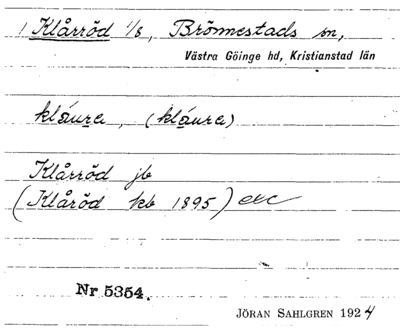 1 Klårröd 1/8, Brönnestads sn,
Västra Göinge hd, Kristianstad län
klåura, (kláura)
Klårröd jb
(Klåröd kb 1895) etc
Nr 5354.
JÖRAN SAHLGREN 1924